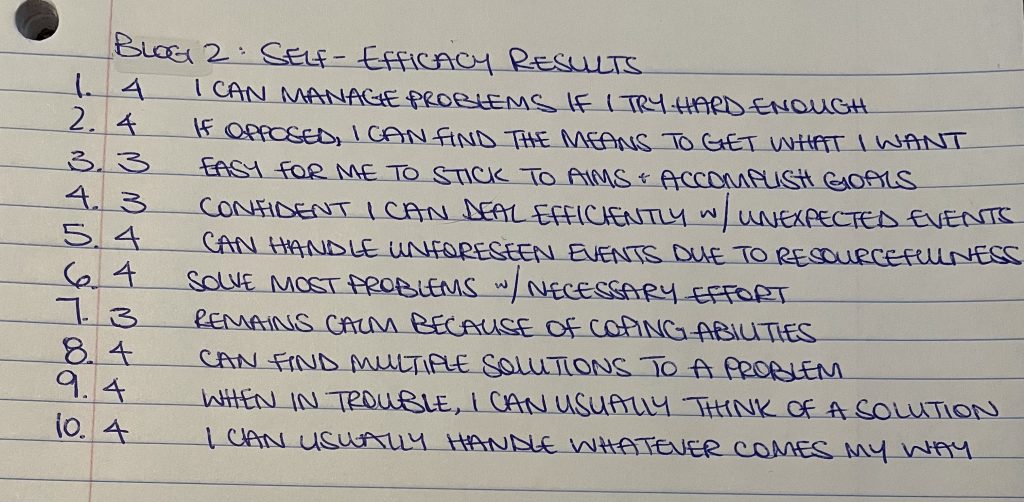 BLOG 2: SELF-EFFICACY RESULTS
1. 4 I CAN MANAGE PROBLEMS IF I TRY HARD ENOUGH
2. 4 IF OPPOSED, I CAN FIND THE MEANS TO GET WHAT I WANT
3. 3 EASY FOR ME TO STICK TO AIMS + ACCOMPLISH GOALS
4. 3 CONFIDENT I CAN DEAL EFFICIENTLY W/ UNEXPECTED EVENTS
5. 4 CAN HANDLE UNFORESEEN EVENTS DUE TO RESOURCEFULLNESS
6. 4 SOLVE MOST PROBLEMS W/ NECESSARY EFFORT
7. 3 REMAINS CALM BECAUSE OF COPING ABILITIES
8. 4 CAN FIND MULTIPLE SOLUTIONS TO A PROBLEM
9. 4 WHEN IN TROUBLE, I CAN USUALLY THINK OF A SOLUTION
10. 4 I CAN USUALLY HANDLE WHATEVER COMES MY WAY